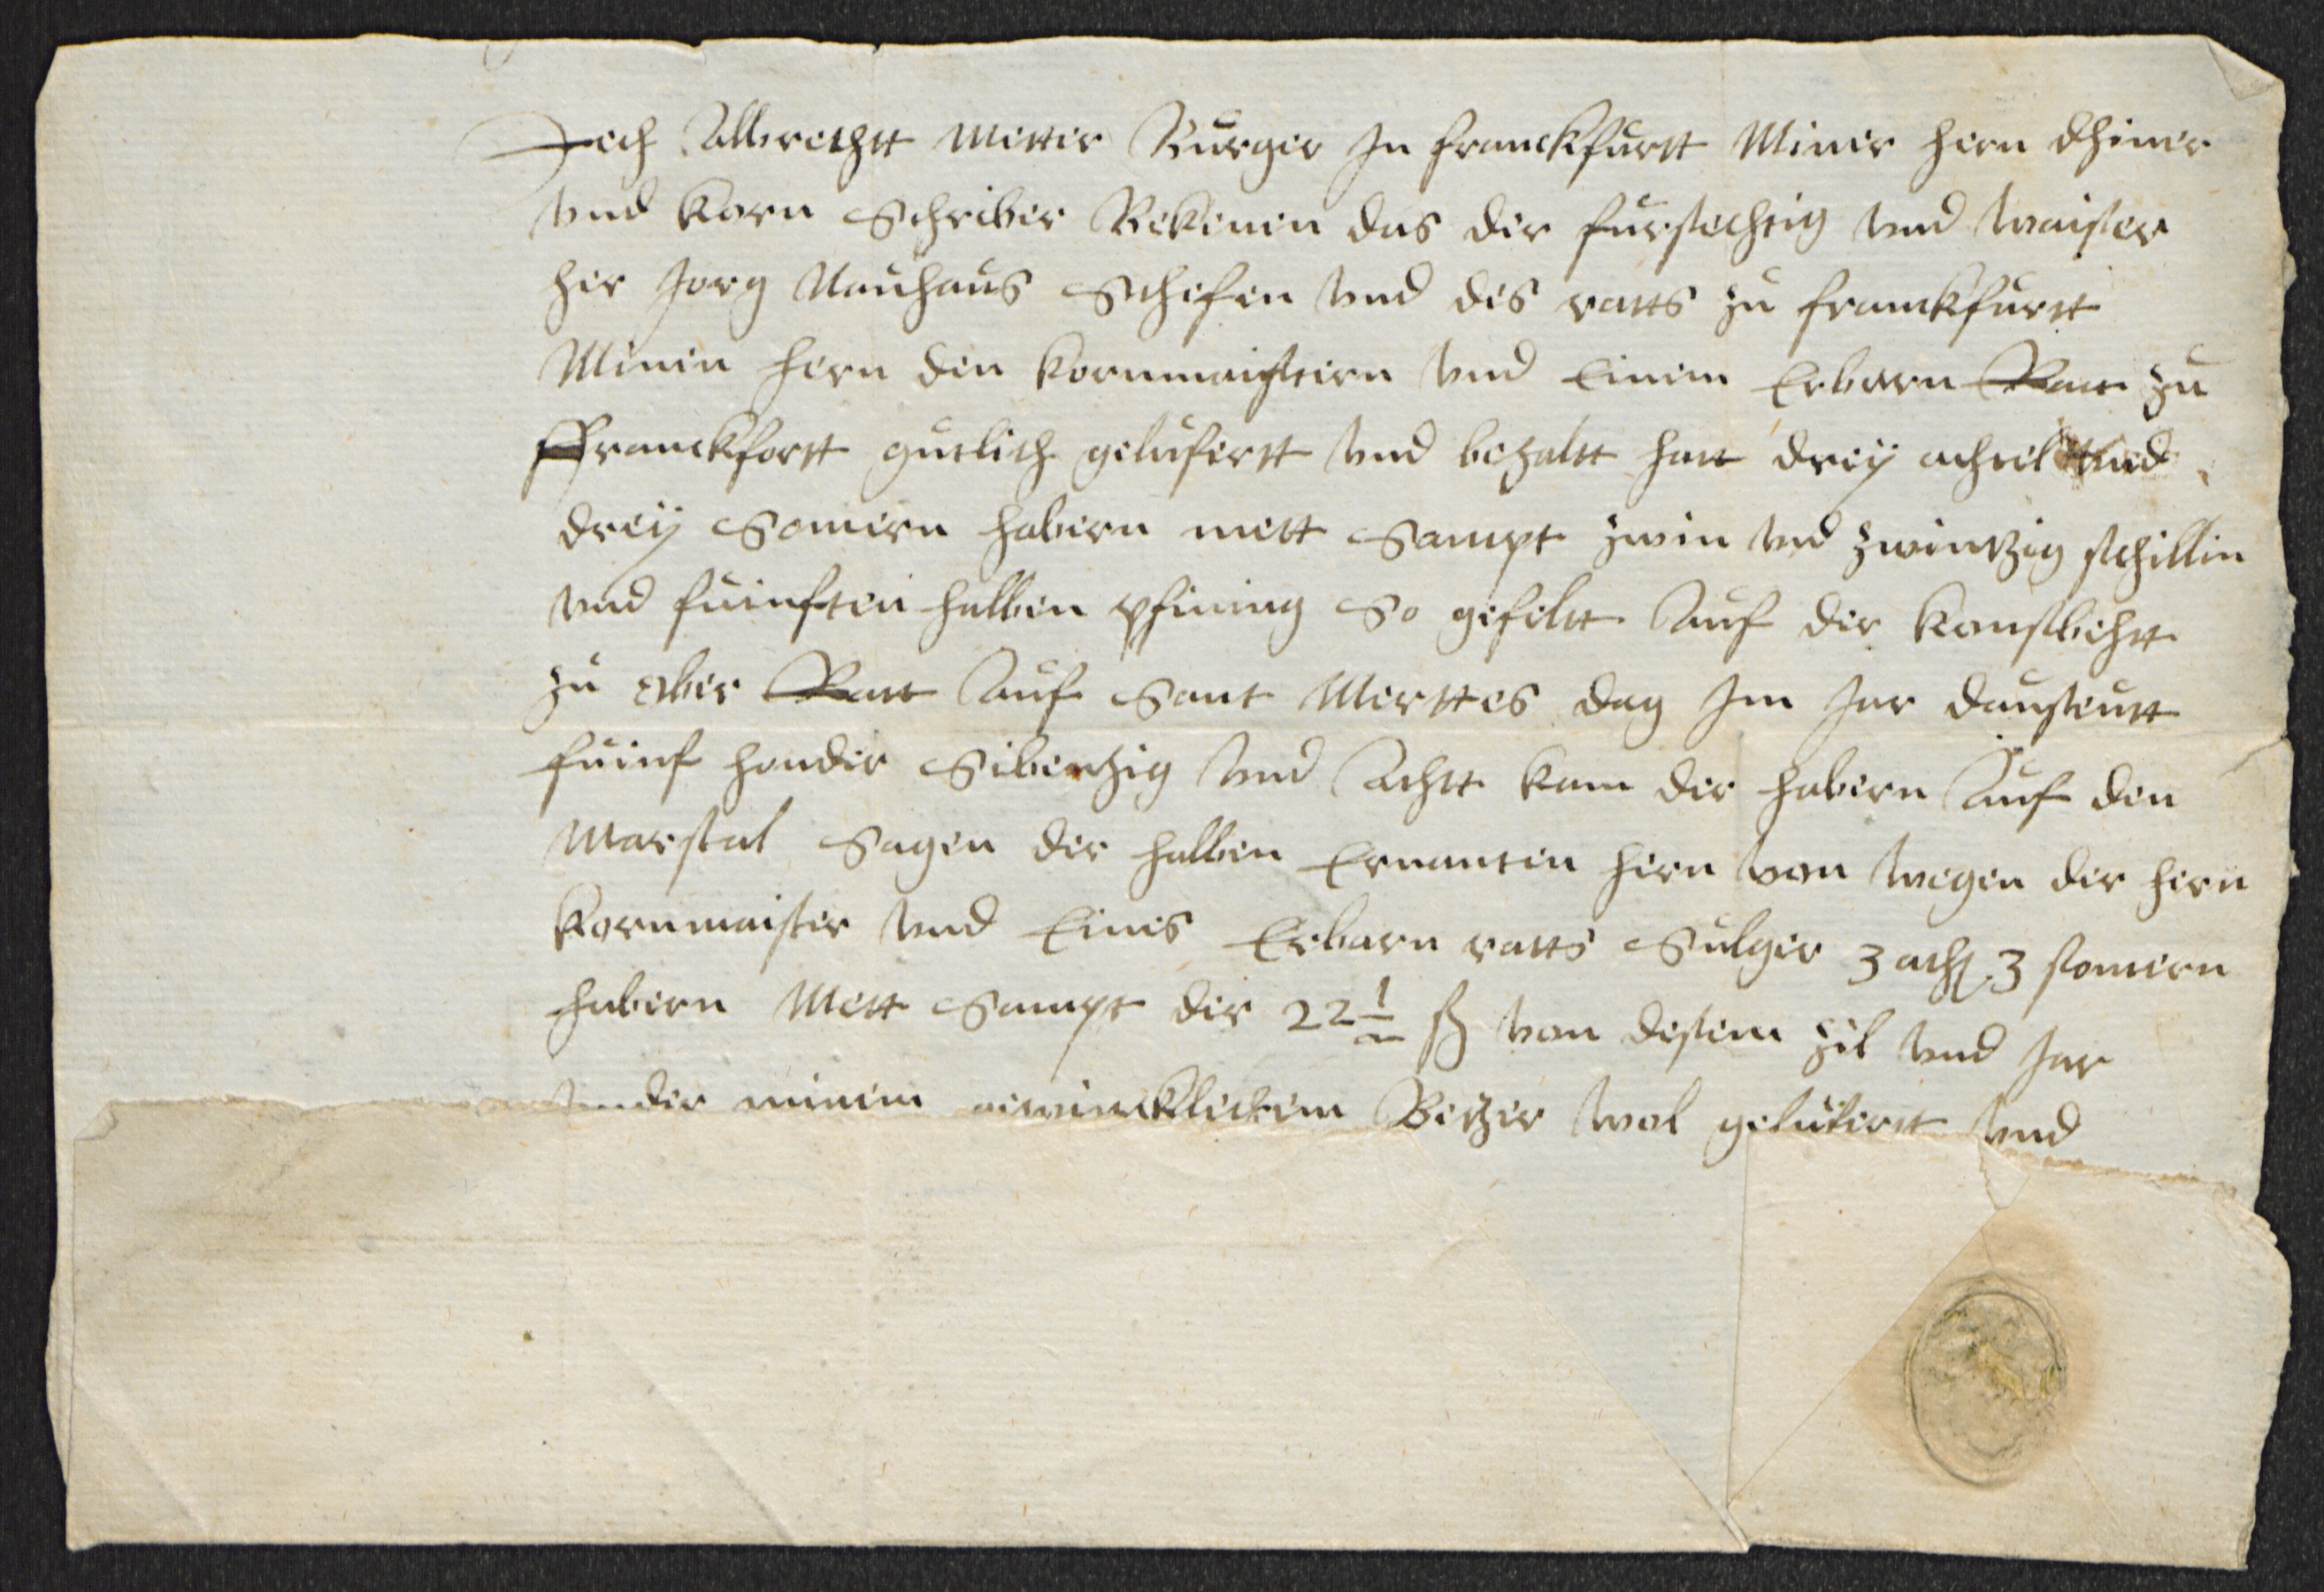 Jech Albrechtt Meier Burger In franckfurtt Miner hern dhiner
vnd korn Schriber Bekenen das der fursechtig vnd waisser
her Jorg Nauhaus Schefen vnd des ratts zu franckfurtt
Minen hern den kornmaistern vnd Einem Erbarn Ratt zu
Franckfortt gutlich gelufertt vnd bezaltt hatt dreÿ achtel vnd
dreÿ Somern habern mett Sampt zwen vnd zwentzig schillin
vnd fuinften halben pfening So gefeltt Auf der
zu Ober Ratt Auf Sant Merttes dag Im Jar dausentt
fuinf honder Sibentzig vnd Achtt kam der habern Auf den
Marstal Sagen der halben Ernanten hern von wegen der hern
kornmaister vnd Eines Erbarn ratts Sulger 3 ach 3 somern
habern Mett Sampt der 22½ ß von dessem zil vnd Jar
vnder minem Betzer wol gelufertt vnd